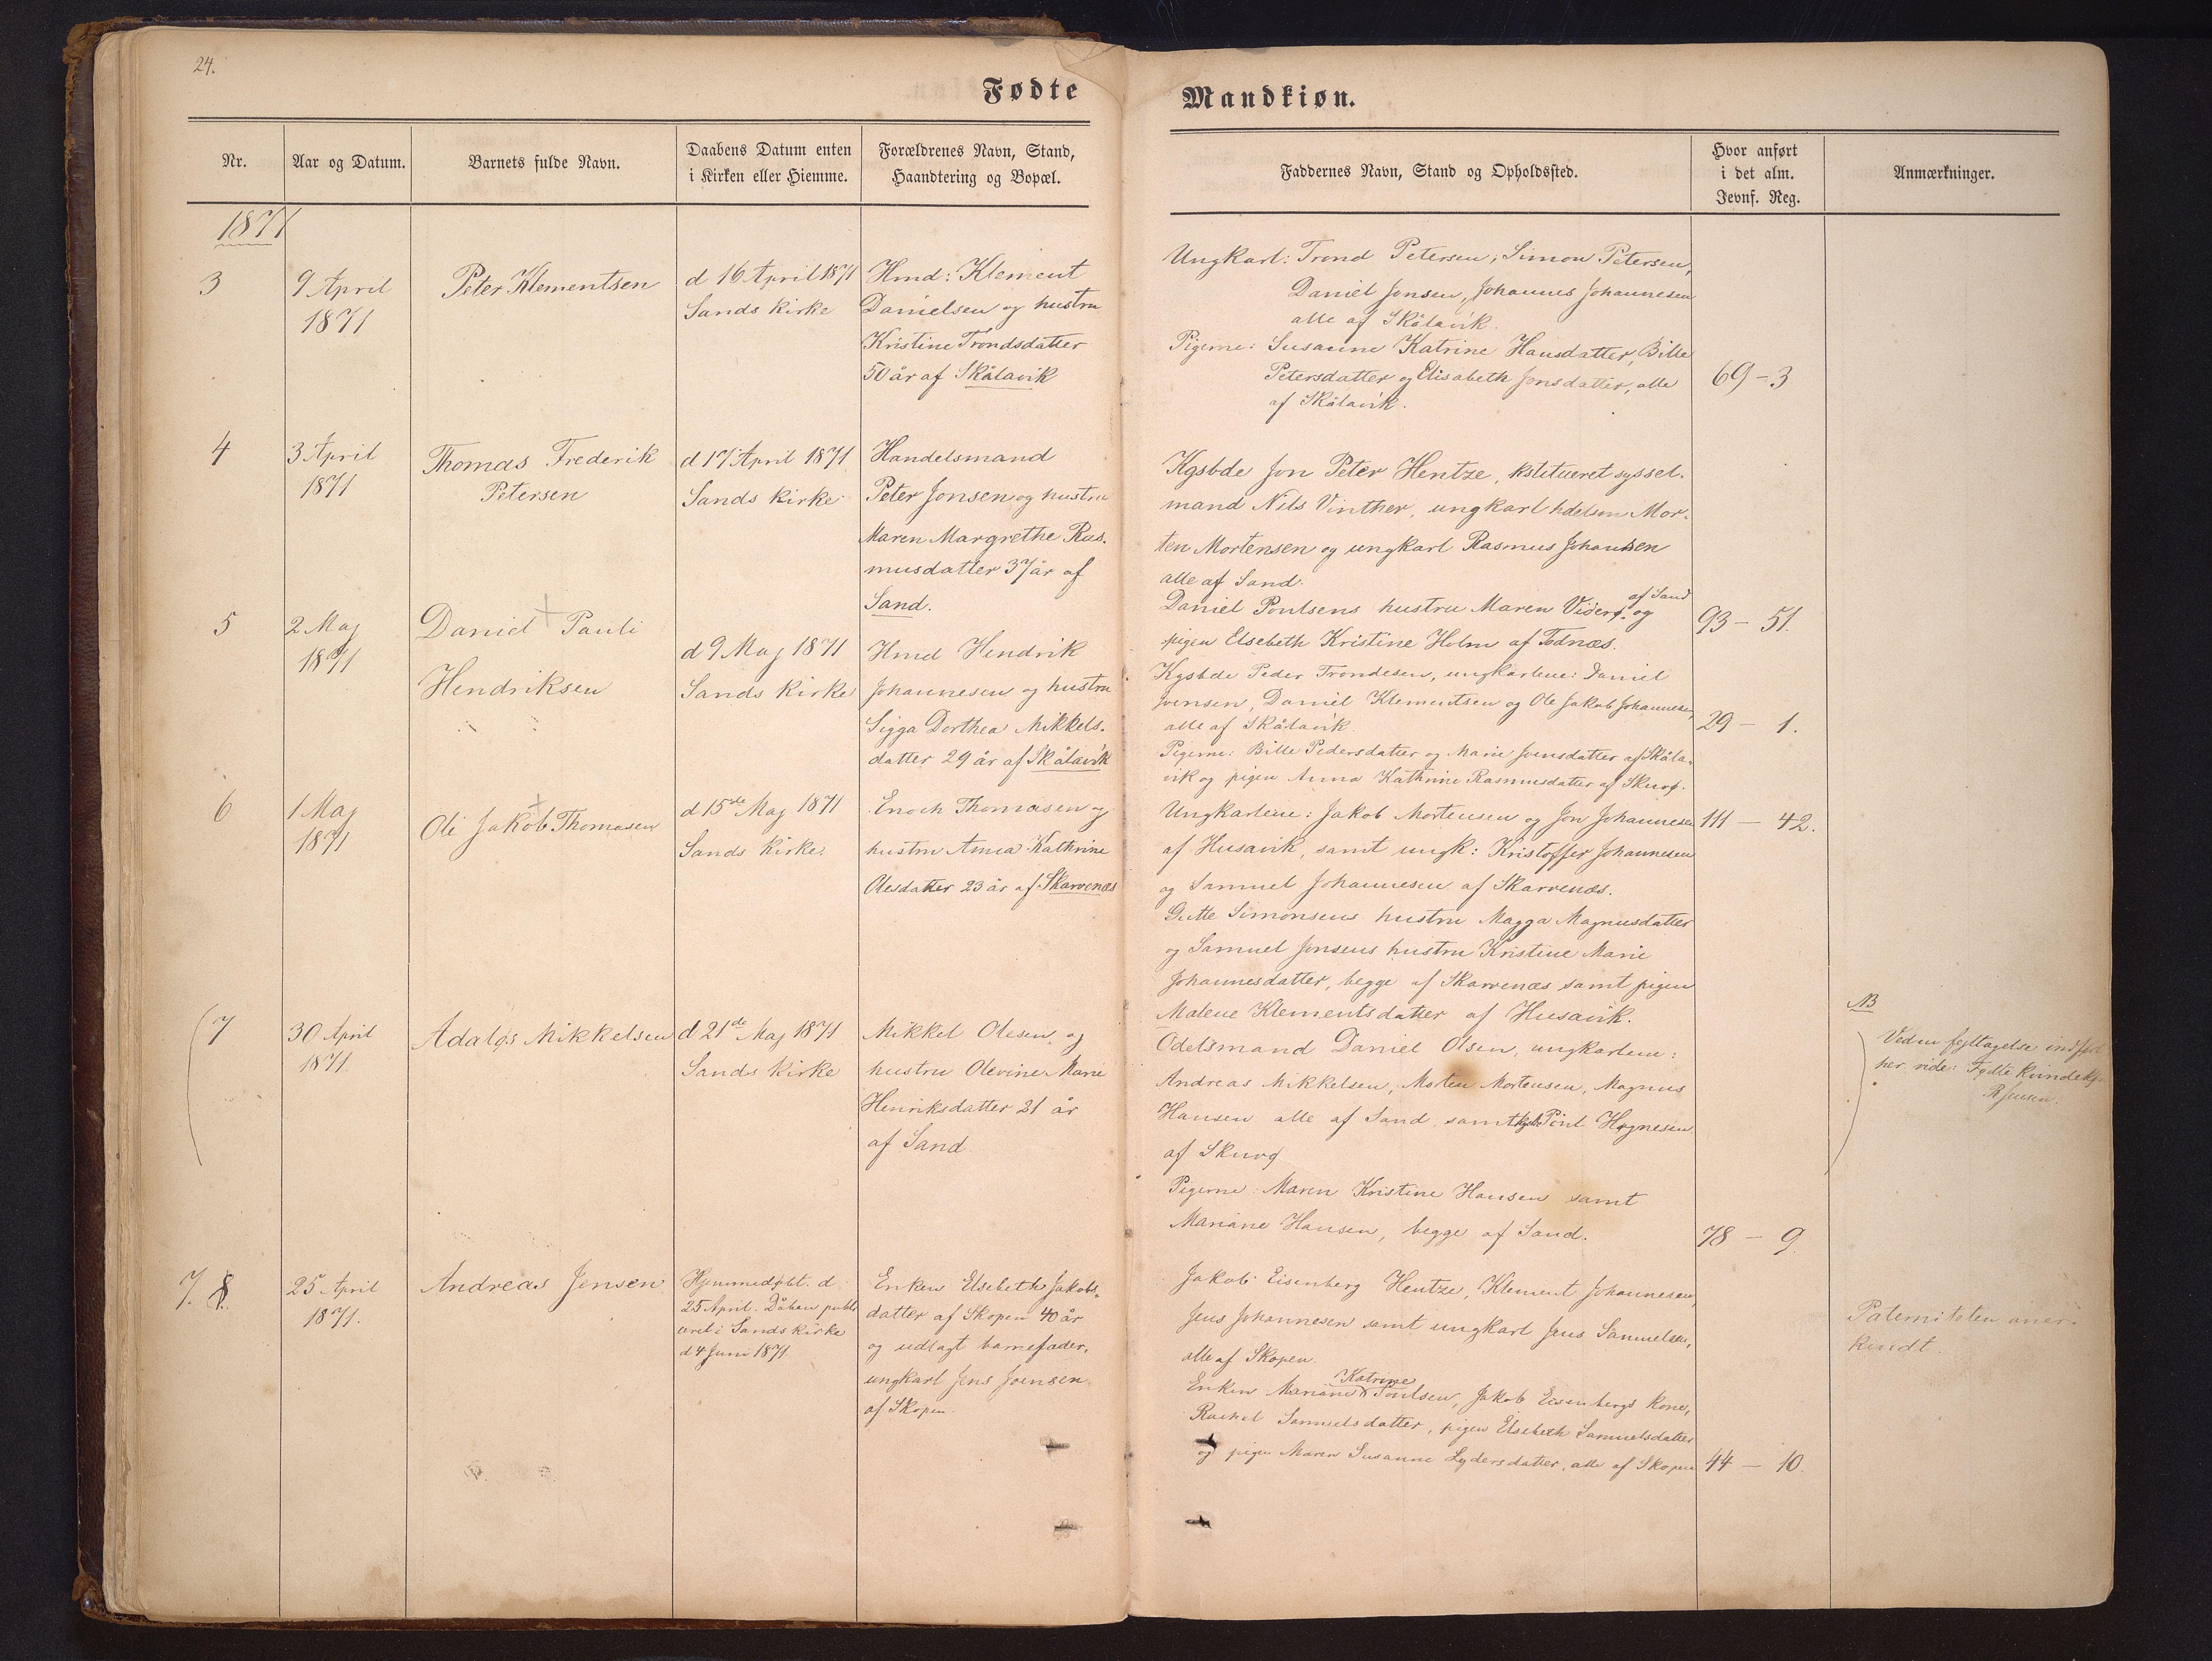 24.
Fødte
Mandkiøn.
Nr.
Aar og Datum.
Barnets fulde Navn.
Daabens Datum enten
i Kirken eller Hiemme.
Forældrenes Navn, Stand,
Haandtering og Bopæl.
Faddernes Navn, Stand og Opholdssted.
Hvor anført
i det alm.
Jevnf. Reg.
Anmærkninger.
1871
3
9 April
1871
Peter Klementsen
d 16 April 1871
Sands Kirke
Hmd: Klement
Danielsen og hustru
Kristine Trondsdatter
50 år af Skålavik
Ungkarl: Trond Petersen, Simon Petersen,
Daniel Jonsen, Johannes Johannesen
alle af Skålavik.
Pigerne: Susanne Katrine Hansdatter, Bille
Petersdatter og Elisabeth Jonsdatter, alle
af Skålavik.
69 - 3
4
3 April
1871
Thomas Frederik
Petersen
d 17 April 1871
Sands Kirke
Handelsmand
Peter Jonsen og hustru
Maren Margrethe Ras-
musdatter 37 år af
Sand.
Kgsbde Jon Peter Hentze, kstitueret syssel-
mand Nils Vinther, ungkarl hdelsm Mor-
ten Mortensen og ungkarl Rasmus Johansen
alle af Sand.
Daniel Poulsens hustru Maren Viderø af Sand og
pigen Elsebeth Kristine Holm af Todnæs.
93 - 51.
5
2 Maj
1871
Daniel Pauli
Hendriksen
d 9 Maj 1871
Sands Kirke
Hmd Hendrik
Johannesen og hustru
Sigga Dorthea Mikkels-
datter 29 år af Skålavik
Kgsbde Peder Trondesen, ungkarlene: Daniel
Joensen, Daniel Klementsen og Ole Jakob Johannesen,
alle af Skålavik
Pigerne: Bille Pedersdatter og Marie Joensdatter af Skåla-
vik og pigen Anna Kathrine Rasmusdatter af Skuvø.
29 - 1.
6
1 Maj
1871
Oli Jakob Thomasen
d 15de Maj 1871
Sands Kirke.
Enoch Thomasen og
hustru Anna Kathrine
Olesdatter 23 år af Skarvenæs
Ungkarlene: Jakob Mortensen og Jon Johannesen
af Husavik, samt ungk: Kristoffer Johannesen
og Samuel Johannesen af Skarvenæs.
Gutte Simonsens hustru Magga Magnusdatter
og Samuel Jonsens hustru Kristine Marie
Johannesdatter, begge af Skarvenæs samt pigen
Malene Klementsdatter af Husavik.
111 - 42.
7
30 April
1871.
Adaløs Mikkelsen
d 21de Maj 1871
Sands Kirke
Mikkel Olesen og
hustru Olevine Marie
Henriksdatter 21 år
af Sand
Odelsmand Daniel Olsen, ungkarlene:
Andreas Mikkelsen, Morten Mortensen, Magnus
Hansen alle af Sand samt Poul Høgnesen
af Skuvø
Pigerne: Maren Kristine Hansen samt
Mariane Hansen, begge af Sand.
78 - 9.
NB
Ved en fejltagelse indført
her vide: Fødte Kvindekj.
7. 8.
25 April
1871.
Andreas Jensen
Hjemmedøbt d.
25 April. Dåben publi
ceret i Sands Kirke
d 4 Juni 1871.
Enken Elsebeth Jakobs-
datter af Skopen 40 år
og udlagt barnefader,
ungkarl Jens Joensen
af Skopen.
Jakob Eisenberg Hentze, Klement Johannesen,
Jens Johannesen samt ungkarl Jens Samuelsen,
alle af Skopen.
Enken Mariane Katrine Poulsen, Jakob Eisenbergs kone,
Rachel Samuelsdatter, pigen Elsebeth Samuelsdatter
og pigen Maren Susanne Lydersdatter, alle af Skopen
44 - 10.
Paterniteten aner-
kendt.